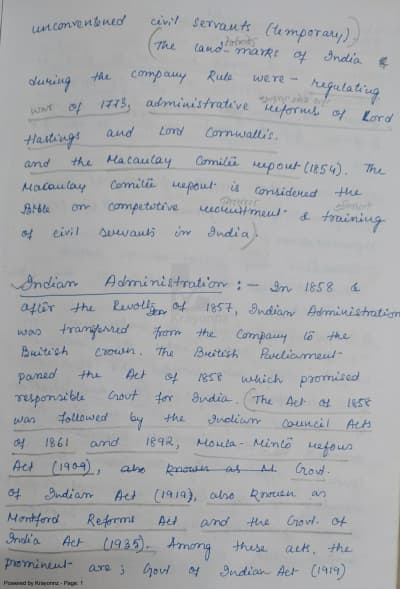 unconvented civil servants (temporary))
(The land-marks of India
during the company Rule were - regulating
war of 1773, administrative reforms of Lord
Hastings and Lord Cornwallis.
and the Macaulay Comitee repout (1854). The
Macaulay Comitee repout is considered the
Bible on competetive recruitment & training
of civil servants in India).
Indian Administration :- In 1858 &
after the Revolt of 1857, Indian Administration
was transferred from the Company to the
British Crown. The British Parliament
passed the Act of 1858 which promised
responsible Govt for India. (The Act of 1858
was followed by the Indian Council Acts
of 1861 and 1892, Moula-Minto refous
Act (1909), also known as M. Govt.
of Indian Act (1919), also known as
Montford Reforms Act and the Govt. of
India Act (1935). Among these acts, the
prominent are; Govt of Indian Act (1919)
Powered by Krayonnz - Page: 1